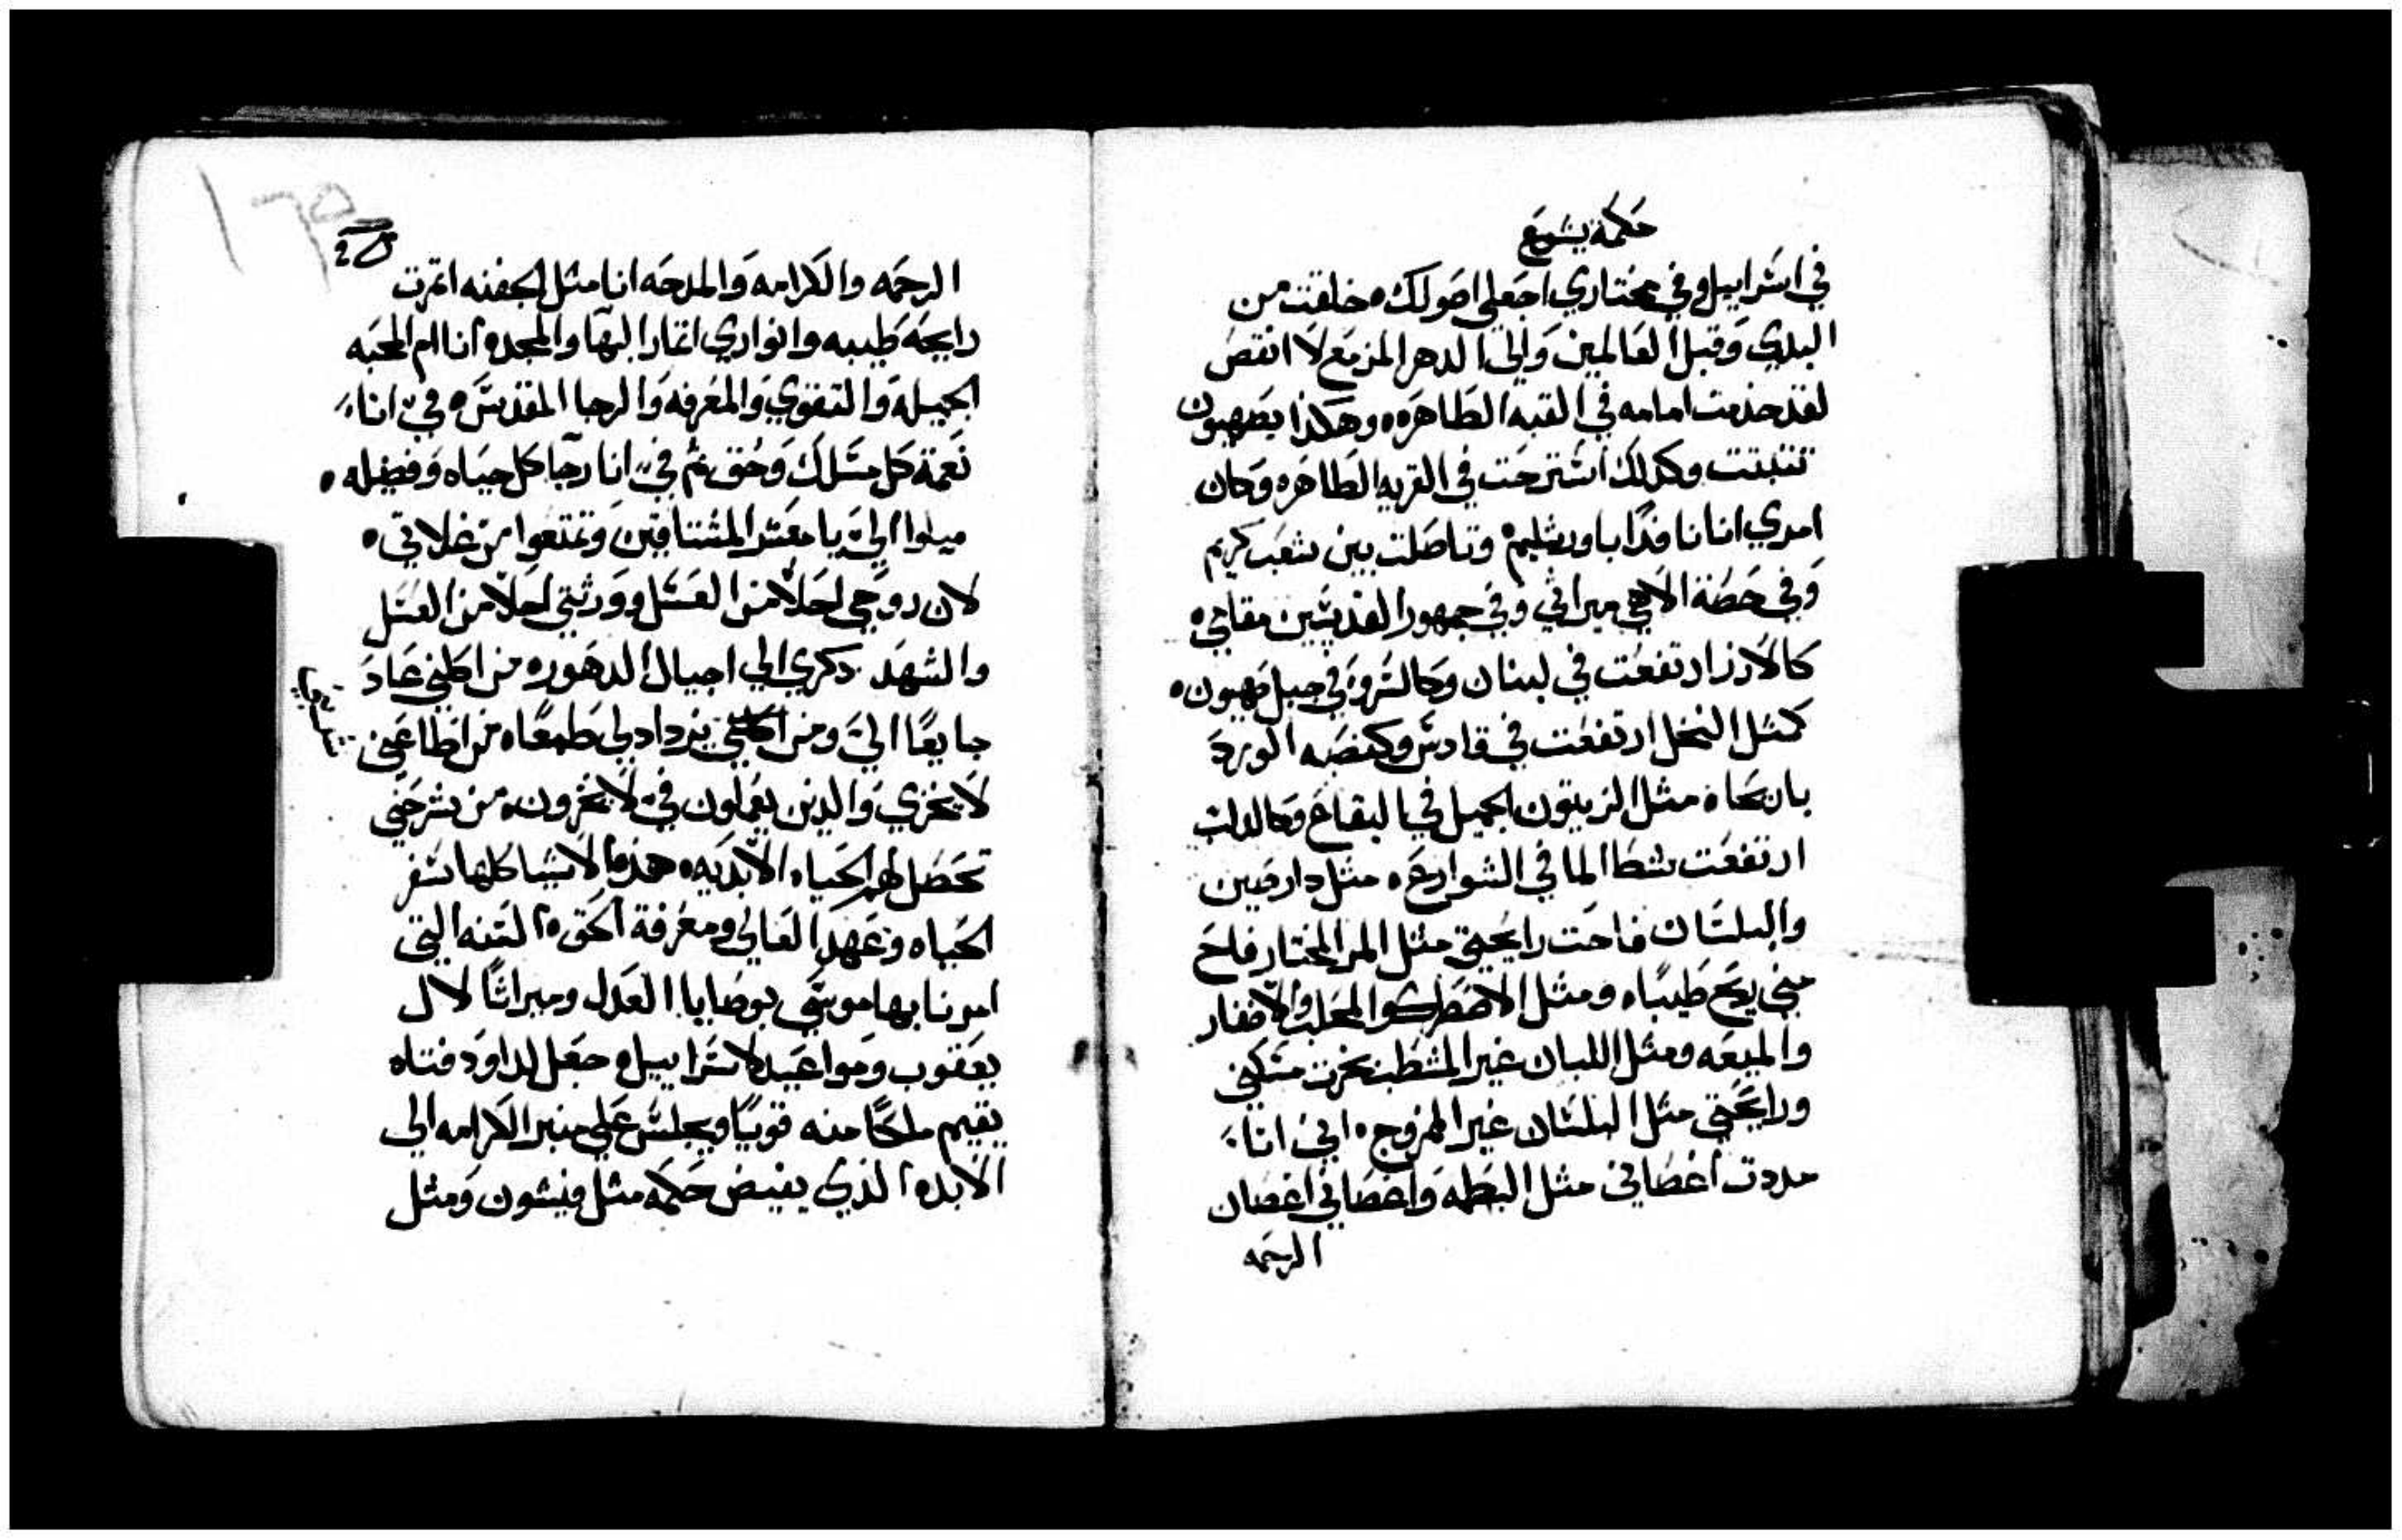 حكمة يشوع
في اسراييل وفي مختاري اجعلي اصولك ه خلقت من
البدي وقبل العالمين والي الدهر المزمع لا انقص
لقد خدمت امامه في القبه الطاهره ه وهكذا بصهيون
تثبتت وكذلك استرحت في القريه الطاهره وكان
امري انا نافذا باورشليم ه وتاصلت بين شعب كريم
وفي حصة الاهي ميراثي وفي جمهور القديسين مقامي ه
كالارز ارتفعت في لبنان وكالسرو في جبل صهيون ه
كمثل النخل ارتفعت في قادس وكنصبه الورد
باريحا ه مثل الزيتون الجميل في البقاع وكالدلب
ارتفعت بشط الما في الشوارع ه مثل دارصين
والبلسان فاحت رايحتي مثل المر المختار فاح
مني ريح طيبا ه ومثل الاصطرك والمحلب والاظفار
والميعه ومثل اللبان غير المشطب بخرت مسكني
ورايحتي مثل البلسان غير الممزوج ه اني انا
مددت اغصاني مثل البطمه واغصاني اغصان
الرحمه
الرحمه والكرامه والمدحه انا مثل الجفنه اثمرت
رايحة طيبه وانواري اثمار البها والمجد ه انا ام المحبه
الجميله والتقوي والمعرفه والرجا المقدس ه في انا
نعمة كل مسلك وحق ثم في انا رجا كل حياه وفضيله ه
ميلوا الي يا معشر المشتاقين وتمتعوا من غلاتي ه
لان روحي احلا من العسل وورثتي احلا من العسل
والشهد ذكري الي اجيال الدهور ه من اكلني عاد
جايعا الي ومن يزداد لي طمعا ه من اطاعني
لا يخزي والدين يعملون في لا يخزون ه من شرحني
تحصل لهم الحياه الابديه ه هذه الاشيا كلها سفر
الحياه وعهد العالي ومعرفة الحق ه السنه التي
امرنا بها موسي بوصايا العدل وميراثا لال
يعقوب ومواعيد لاسراييل ه جعل لداود فتاه
يقيم ملكا منه قويا ويجلس علي منبر الكرامه الي
الابد ه الذي يفيض حكمه مثل فيشون ومثل